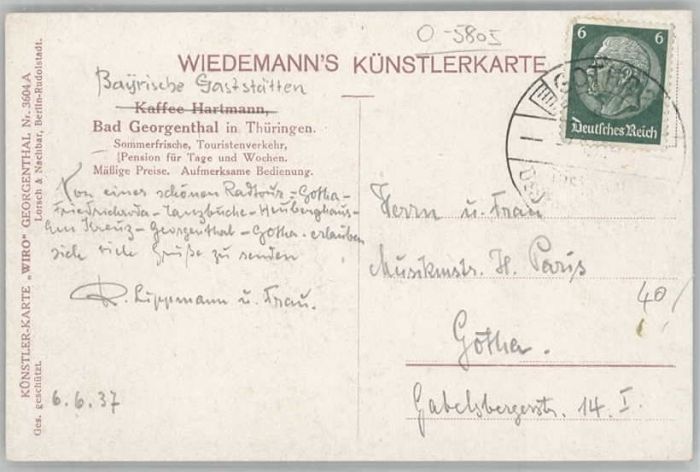 O-5805
WIEDEMANN'S KÜNSTLERKARTE
Bayrische Gaststätten
Kaffee Hartmann,
Bad Georgenthal in Thüringen.
Sommerfrische, Touristenverkehr,
Pension für Tage und Wochen.
Mäßige Preise. Aufmerksame Bedienung.
Von einer schönen Radtour - Gotha -
Friedrichroda - Tanzbuche - Heuberghaus -
Kreuz - Georgenthal - Gotha - erlauben
sich viele Grüße zu senden
R. Lippmann u. Frau.
6.6.37
KÜNSTLER-KARTE „WIRO" GEORGENTHAL Nr. 3604 A
Ges. geschützt. Lorsch & Nachbar, Berlin-Rudolstadt.
6 6
Deutsches Reich
GOTHA
Herrn u. Frau
Musikmstr. H. Paris
Gotha.
Gabelsbergerstr. 14. I.
40/